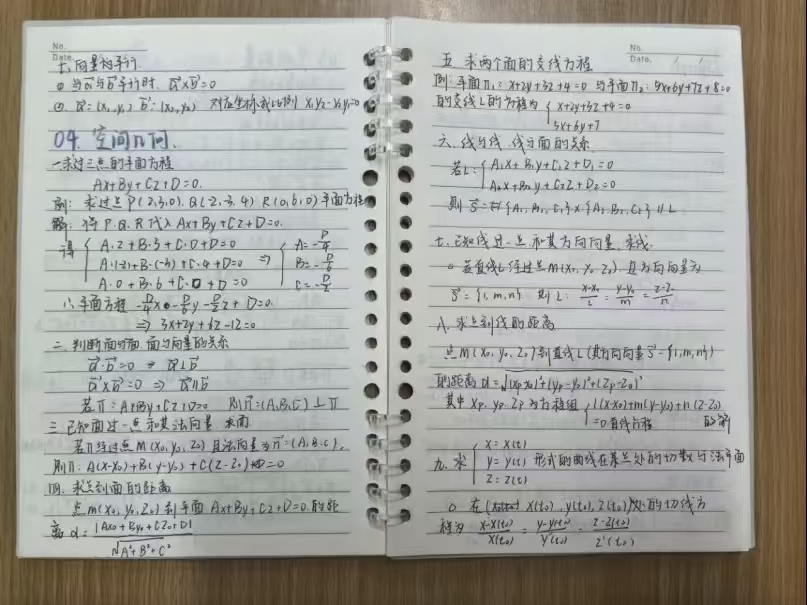 No.
Date
六.向量的平行.
① 当a与b平行时. a×b=0
②. a=(x₁,y₁) b=(x₂,y₂) 对应坐标成比例 x₁y₂-x₂y₁=0
04. 空间几何.
一.求过三点的平面方程
Ax+By+Cz+D=0.
例: 求过点P(2,3,0). Q(-2,-3,4) R(0,6,0)平面方程
解: 将P.Q.R代入Ax+By+Cz+D=0.
得 { A·2+B·3+C·0+D=0
A·(-2)+B·(-3)+C·4+D=0
A·0+B·6+C·0+D=0
⇒ { A=-D/4
B=-D/6
C=-D/2
∴平面方程 -D/4x-D/6y-D/2z+D=0.
⇒ 3x+2y+6z-12=0
二.判断面与面.面与向量的关系
a·b=0 ⇒ a⊥b
a×b=0 ⇒ a∥b
若π:Ax+By+Cz+D=0 则n=(A,B,C)⊥π
三.已知面过一点和其法向量.求面
若π经过点M(x₀,y₀,z₀)且法向量为n=(A,B,C),
则π: A(x-x₀)+B(y-y₀)+C(z-z₀)=0
四.求点到面的距离
点M(x₀,y₀,z₀)到平面Ax+By+Cz+D=0.的距
离d=|Ax₀+By₀+Cz₀+D|/√A²+B²+C²
No.
Date.
五.求两个面的交线方程
例:平面π₁: x+2y+3z+4=0与平面π₂: 5x+6y+7z+8=0
的交线L的方程为 { x+2y+3z+4=0
5x+6y+7
六.线与线.线与面的关系
若L:{ A₁x+B₁y+C₁z+D₁=0
A₂x+B₂y+C₂z+D₂=0
则S={A₁,B₁,C₁}×{A₂,B₂,C₂}∥L
七.已知线过一点和其方向向量.求线.
① 若直线L经过点M(x₀,y₀,z₀),且方向向量为
S={l,m,n} 则L: x-x₀/l=y-y₀/m=z-z₀/n
八.求点到线的距离
点M(x₀,y₀,z₀)到直线L(其方向向量S={l,m,n})
的距离d=√(xp-x₀)²+(yp-y₀)²+(zp-z₀)²
其中xp,yp,zp为方程组 { l(x-x₀)+m(y-y₀)+n(z-z₀)
=0直线方程 的解
九.求 { x=x(t)
y=y(t) 形式的曲线在某点处的切线与法平面
z=z(t)
① 在(x(t₀),y(t₀),z(t₀))处的切线方
程为 x-x(t₀)/x'(t₀)=y-y(t₀)/y'(t₀)=z-z(t₀)/z'(t₀)